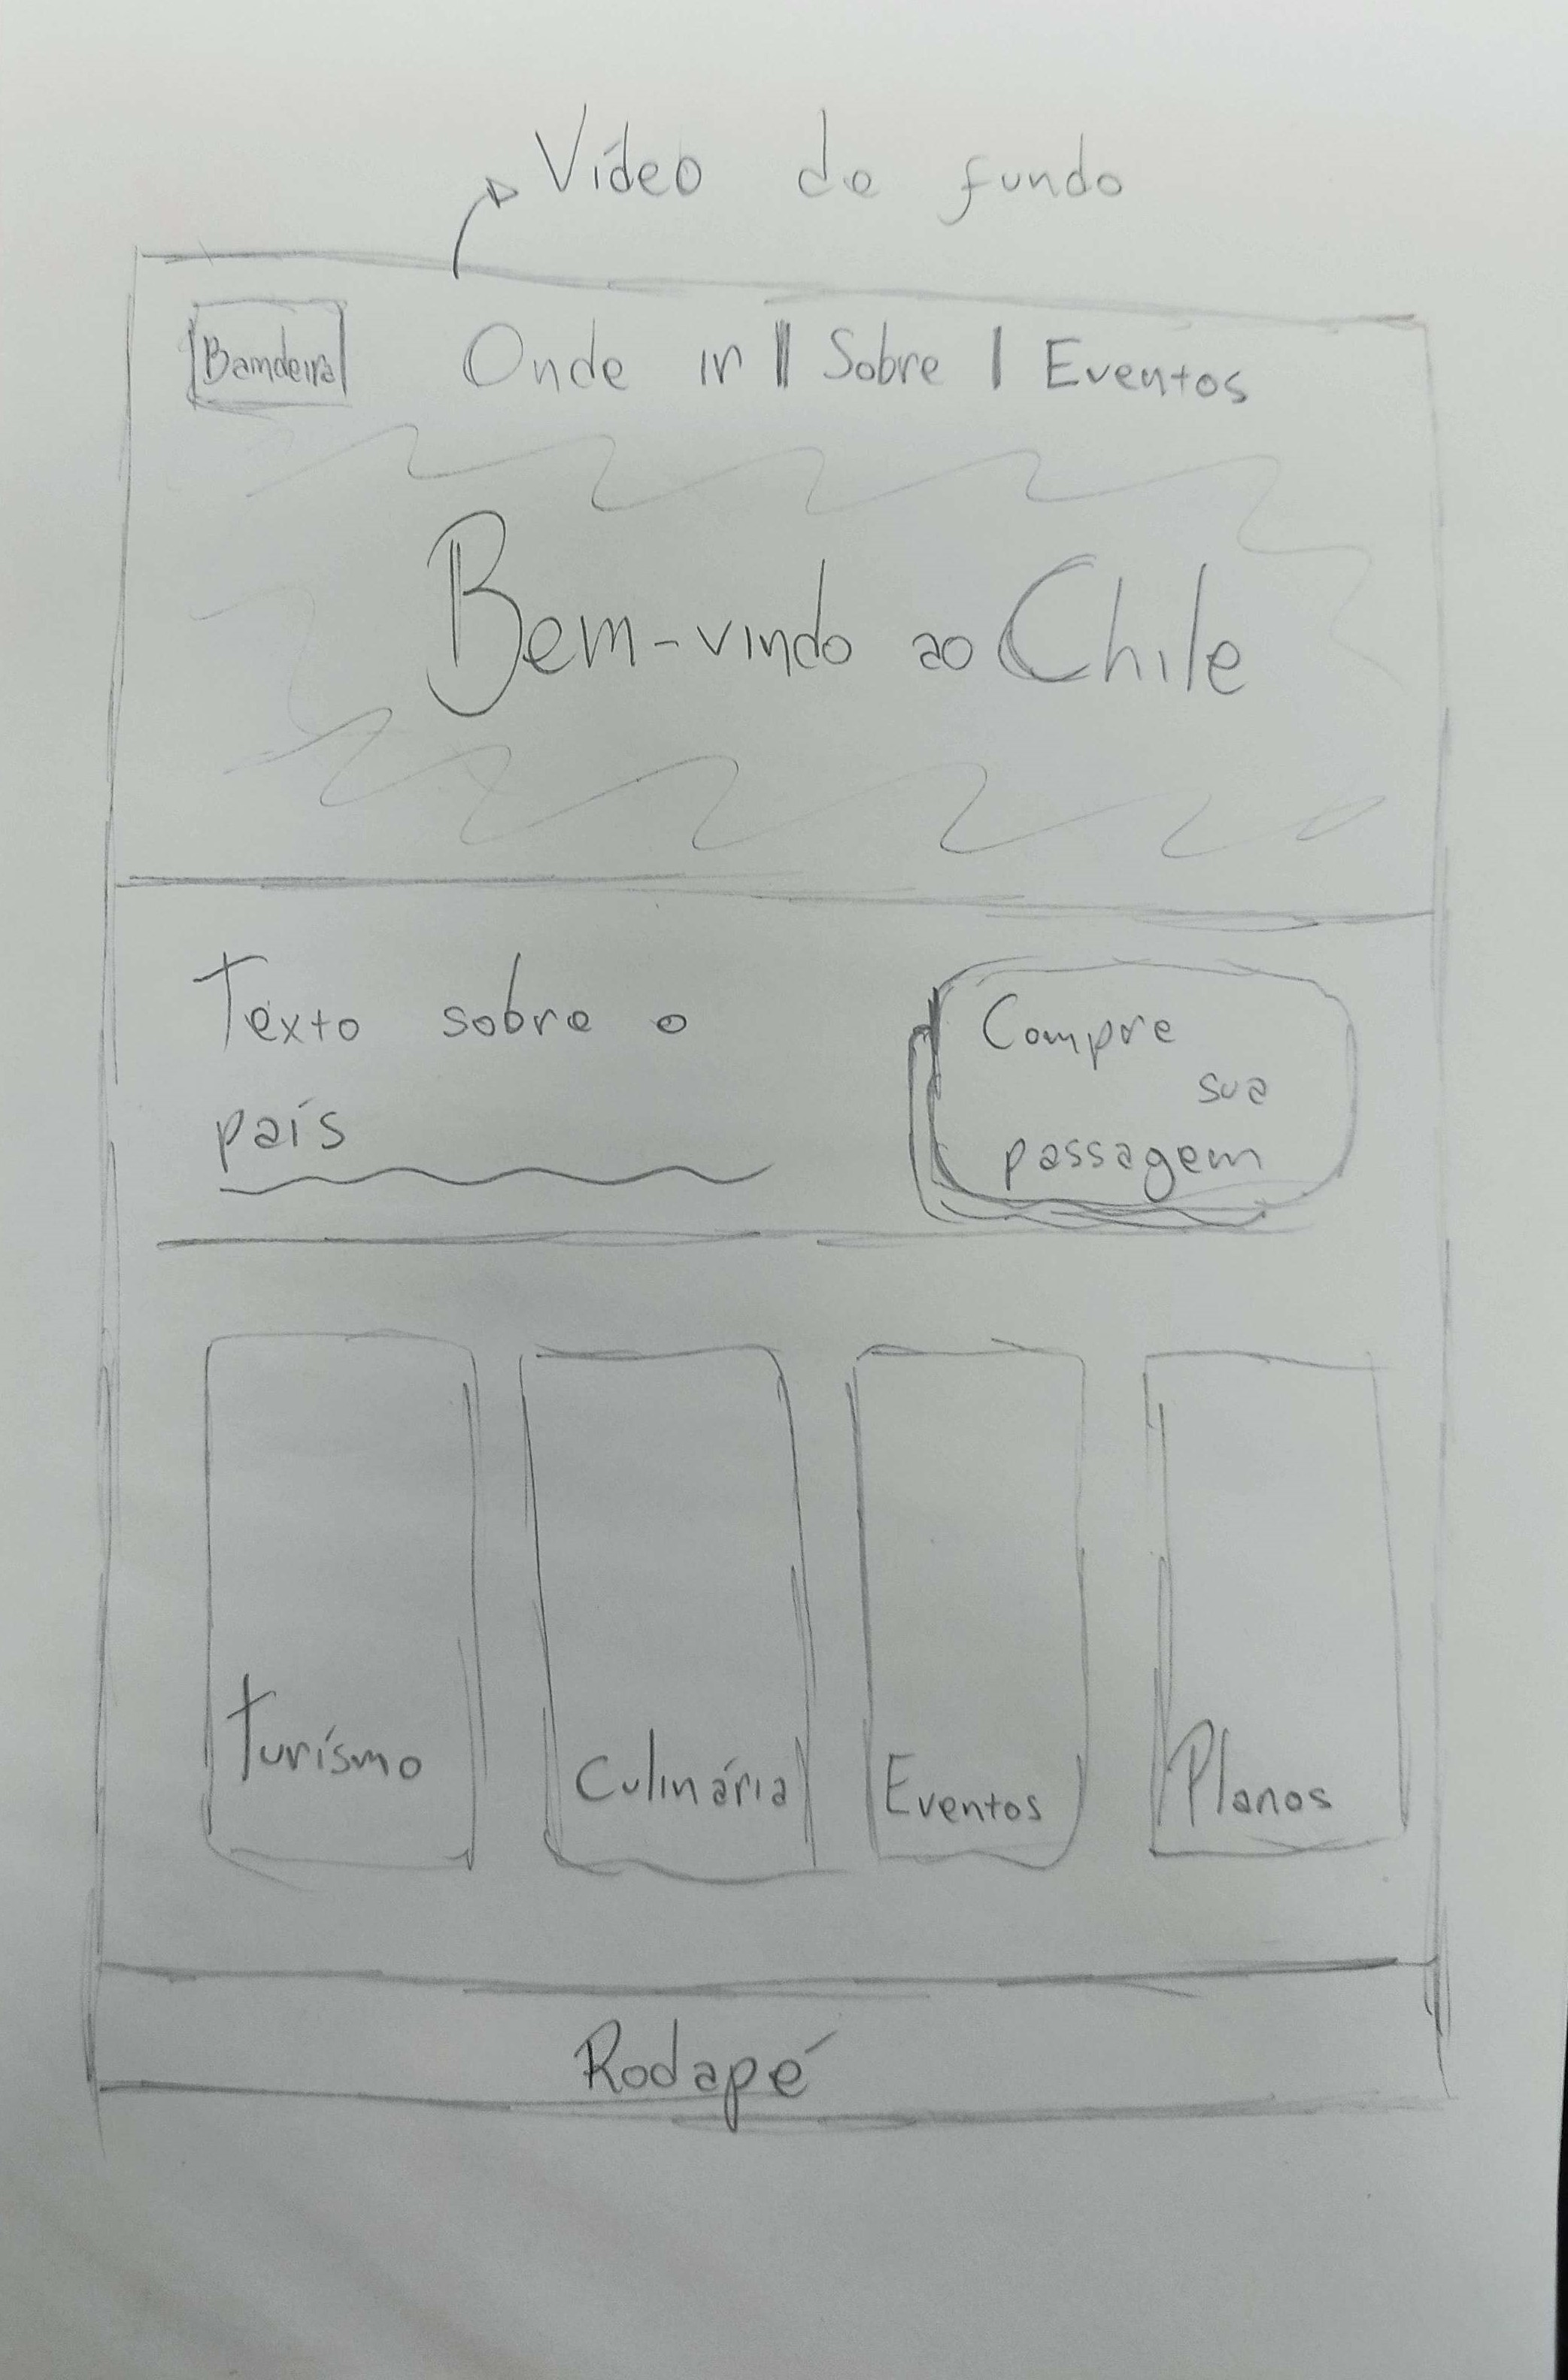 Vídeo de fundo
Bandeira
Onde ir | Sobre | Eventos
Bem-vindo ao Chile
Texto sobre o
país
Compre
sua
passagem
Turísmo
Culinária
Eventos
Planos
Rodapé